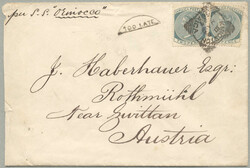 per S.S. "Ormocoo"
TOO LATE
J. Haberhauer Esqr:
Rothmühl
Near Zwittau
Austria